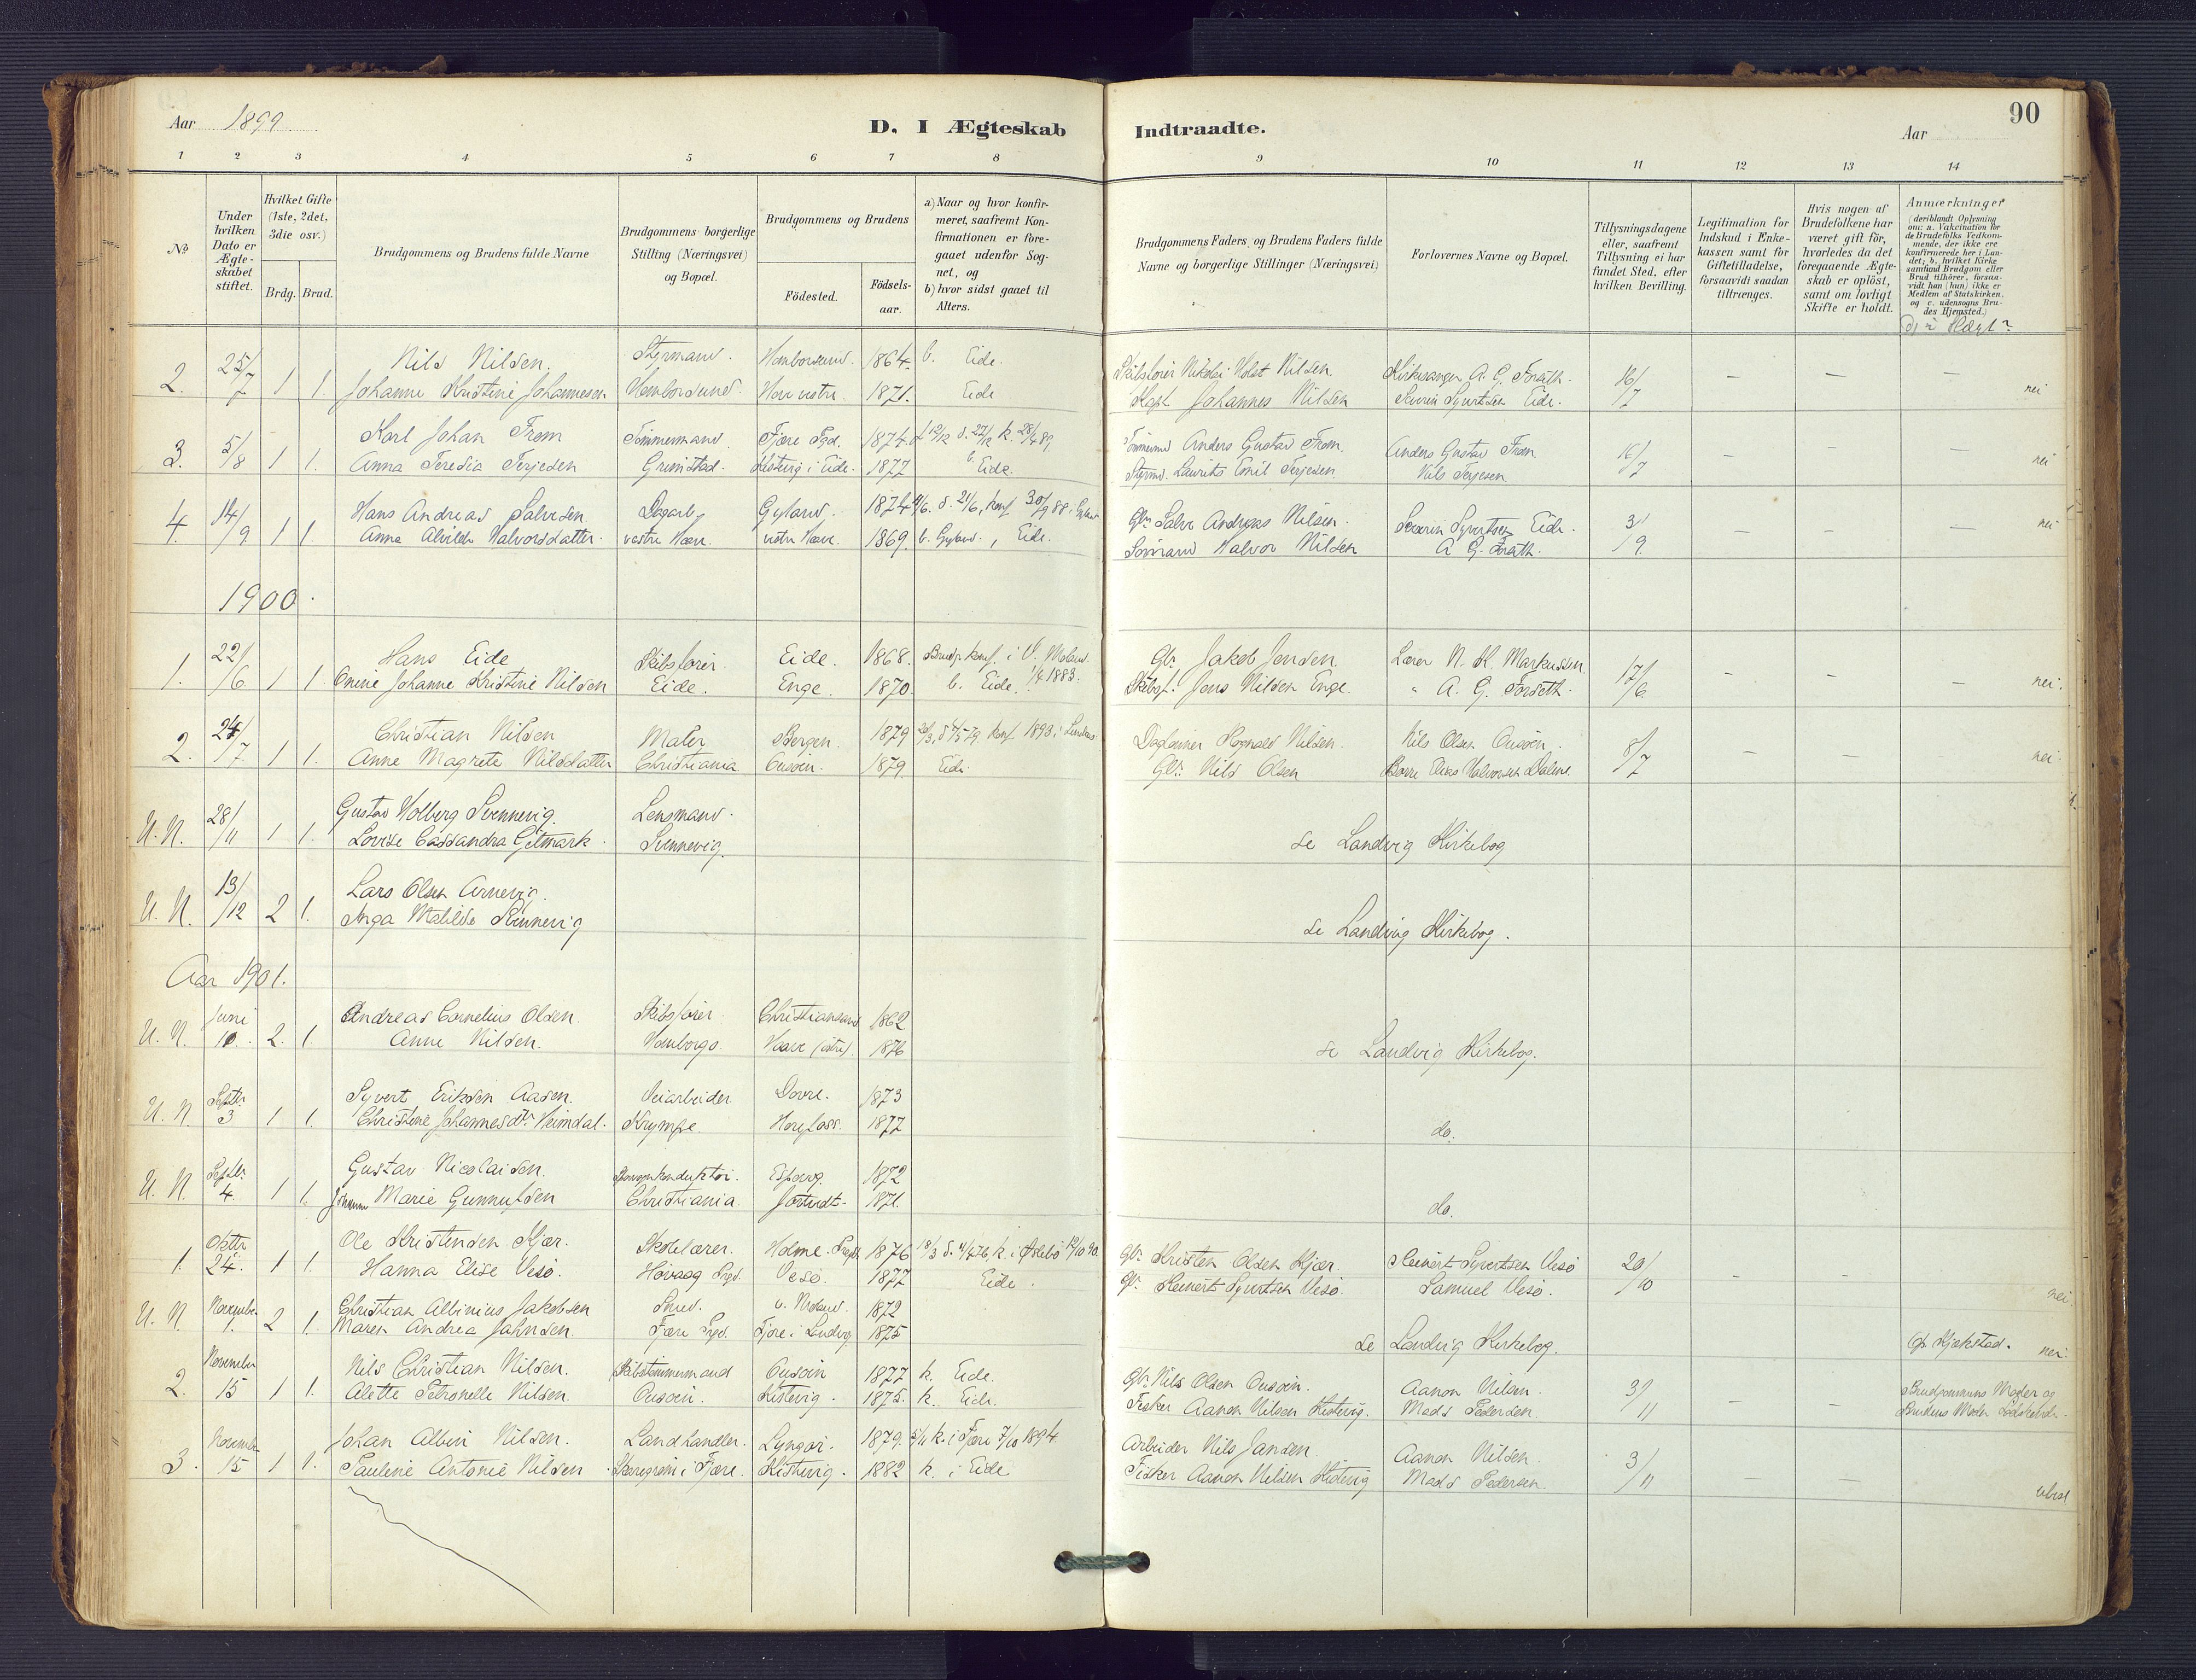 Aar 1899
D. I Ægteskab
Indtraadte.
Aar
90
1 2 3 4 5 6 7 8 9 10 11 12 13 14
No
Under hvilken Dato er Ægteskabet stiftet.
Hvilket Gifte (1ste, 2det, 3die osv.)
Brdg. Brud.
Brudgommens og Brudens fulde Navne
Brudgommens borgerlige Stilling (Næringsvei) og Bopæl.
Brudgommens og Brudens
Födested.
Födsels-aar.
a) Naar og hvor konfirmeret, saafremt Konfirmationen er foregaaet udenfor Sognet, og
b) hvor sidst gaaet til Alters.
Brudgommens Faders og Brudens Faders fulde Navne og borgerlige Stillinger (Næringsvei)
Forlovernes Navne og Bopæl.
Tillysningsdagene eller, saafremt Tillysning ei har fundet Sted, efter hvilken Bevilling.
Legitimation for Indskud i Enkekassen samt for Giftetilladelse, forsaavidt saadan tiltrænges.
Hvis nogen af Brudefolkene har været gift för, hvorledes da det foregaaende Ægteskab er oplöst, samt om lovligt Skifte er holdt.
Anmærkninger
(deriblandt Oplysning om: a. Vakcination for de Brudefolks Vedkommende, der ikke ere konfirmerede her i Landet; b. hvilket Kirkesamfund Brudgom eller Brud tilhörer, forsaavidt han (hun) ikke er Medlem af Statskirken, og c. udensogns Brudes Hjemsted.)
2. 25/7 1 1. Nils Nilsen. Styrmand. Homborsund. 1864. b. Eide. Skibsförer Nikolai Holst Nilsen. Kirkesanger A. G. Forsäth. 16/7 — — — nei
Johanne Kristine Johannesen Hombørsund Hove vestre 1871. Eide Kapt Johannes Nilsen Severin Syvertsen Eide.
3. 5/8 1 1. Karl Johan Fröm Tömmermand. Fjære Sogd. 1874. f 12/12 d. 27/12 k. 28/4 89. Tömmerm. Anders Gustav Fröm. Anders Gustav Fröm 16/7 — — nei
Anna Teresia Terjesen Grimstad. Kistevig i Eide. 1877 b. Eide. Styrmd. Laurits Emil Terjesen. Nils Terjesen
4. 14/9 1 1. Hans Andreas Salvesen Dagarb. Gyland. 1874 4/6. d. 21/6, konf. 30/9 88 i Gyland Gbr. Salve Andreas Nilsen. Severin Syvertsen Eide. 3/9 — — — nei
Anna Alvilde Halvorsdatter. vestre Hove. vestre Hove. 1869. b. Gyland., Eide. Sömand Halvor Nilsen A. G. Forsäth.
1900.
1. 22/6 1 1. Hans Eide Skibsförer. Eide. 1868. Brudg. konf. i V. Moland. Gbr. Jakob Jensen. Lærer N. K. Markussen. 17/6 - - — nei.
Omine Johanne Kristine Nilsen Eide. Enge. 1870. b. Eide. 1/4 1883. Skibsf. Jens Nilsen Enge. " A. G. Forseth.
2. 24/7. 1 1. Christian Nilsen Maler Bergen. 1879 konf. 1893 i Daglönner Nilsen. Nils Olsen Ousöen. 8/7 — — nei.
Anne Magrete Nilsdatter Christiania Ousöen. 1879. Eide. Gbr. Nils Olsen Börre Elias Halvorsen Dalene.
U. N. 28/11 1 1. Gustav Holberg Svennevig. Lensmand. se Landvig Kirkebog
Lovise Cassandra Gitmark. Svennevig.
U. N. 13/12 2 1. Lars Olsen Arnevig. se Landvig Kirkebog.
Inga Matilde Svennevig
Aar 1901.
U. N. Juni 10. 2. 1. Andreas Cornelius Olsen. Skibsförer Christiansand 1862 se Landvig Kirkebog.
Anne Nilsen. Homborgs. Hove (østre) 1876
U. N. Septbr. 3 1 1. Syvert Eriksen Aasen. Veiarbeider Dovre. 1873 do.
Christine Johannesdtr. Heimdal. Krympe. Horgfoss. 1877
U. N. Septbr. 4. 1 1. Gustav Nicolaisen. Sporvognkonduktör. Esperg. 1872 do.
Johanne Marie Gunnufsen Christiania Jortvedt. 1871.
1. Oktbr 24. 1 1. Ole Kristensen Kjær. Skolelærer. Holme. 1876 18/3 d. 4/4 76, k. i Øslebö 12/10 90. Gbr. Kristen Olsen Kjær. Steinert Syvertsen Vesö 20/10 - - nei.
Hanna Elise Vesö. Hövaag Sogd. Vesö. 1877 Eide. Gbr. Steinert Syvertsen Vesö. Samuel Vesö.
U. N. November 1. 2 1. Christian Albinius Jakobsen Smed. V. Moland. 1872 se Landvig Kirkebog. Kjekstad. nei.
Maren Andrea Jahnsen. Fjære Sogd. Fjære i Landvig 1875
2. November 15 1 1. Nils Christian Nilsen. Skibstömmermand Ousöen 1877 k. Eide. Gbr. Nils Olsen Ousöen. Aanon Nilsen. 3/11 — — Brudgommens Moder og
Alette Petronelle Nilsen. Ousöen. Kistevig. 1875. k. Eide. Fisker Aanon Nilsen Kistevig. Mads Pedersen. Brudens Moder Södskende.
3. November 15 1 1. Johan Albin Nilsen. Landhandler. Lyngör. 1879. 5/11 k. i Fjære 7/10 1894. Arbeider Nils Jansen. Aanon Nilsen. 3/11 — —
Pauline Antonie Nilsen i Fjære. Kistevig. 1882 k. i Eide Fisker Aanon Nilsen Kistevig Mads Pedersen.